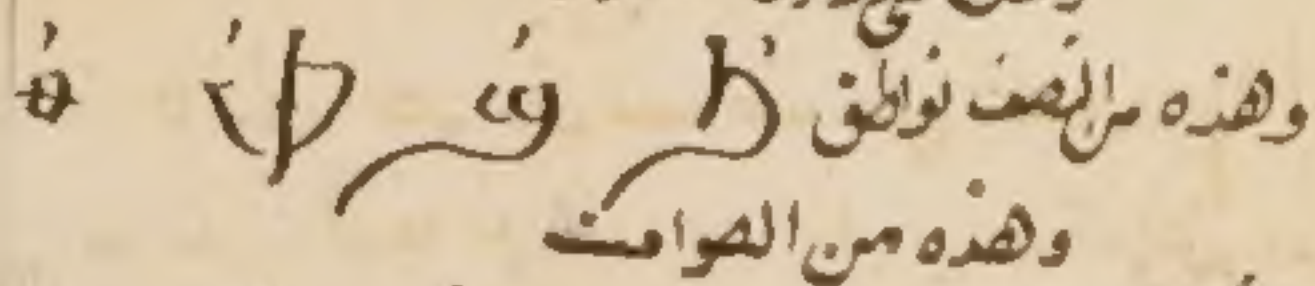 وهذه من النصف نواطق ϧ̀ ϣ̀ ⲫ̀ ⲑ̀
وهذه من الصوامت